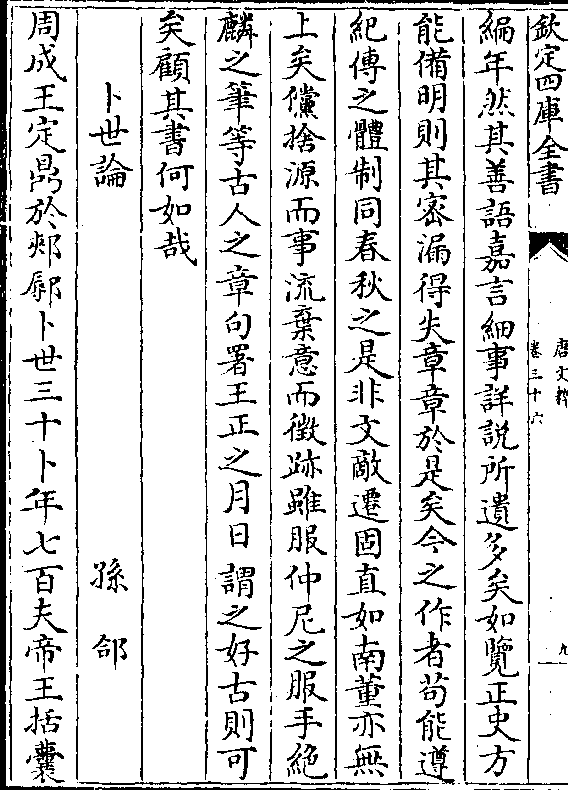 欽定四庫全書
唐文粹
卷三十六
九
編年然其善語嘉言細事詳説所遺多矣如覽正史方
能備明則其密漏得失章章於是矣今之作者苟能遵
紀傳之體制同春秋之是非文敵遷固直如南董亦無
上矣儻捨源而事流棄意而徴跡雖服仲尼之服手絶
麟之筆等古人之章句署王正之月日謂之好古則可
矣顧其書何如哉
卜世論 孫郃
周成王定鼎於郟鄏卜世三十卜年七百夫帝王括囊